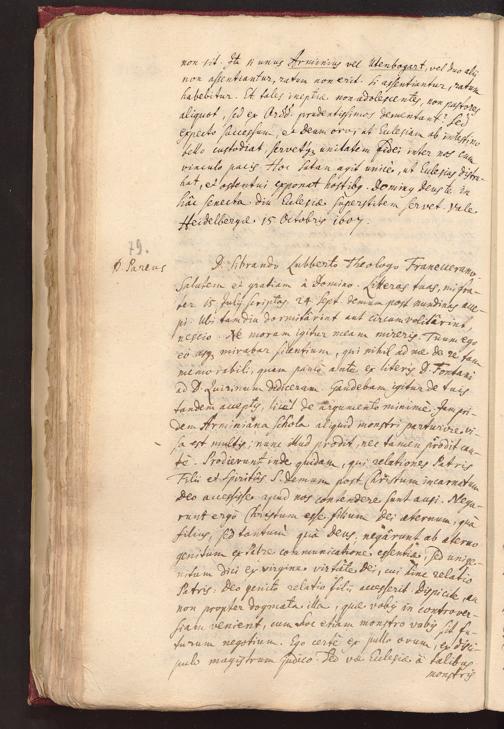 non sit. Ita si unus Arminius vel Utenbogart, vel duo alii
non assentiantur, ratum non erit. Si assentiantur, ratum
habebitur. Et tales ineptiæ non adolescentes, non pastores
aliquot, sed ex Ordd. prudentissimos dementant? Sed
expecto successum, et Deum oro, ut Ecclesiam ab intestino
bello custodiat, servetq; unitatem fidei inter nos cum
vinculo pacis. Hoc Satan agit unice, ut Ecclesias distra-
hat, et ostentui exponat hostibq. Dominq Deus te in
hâc senecta diu Ecclesiæ superstitem servet. Vale
Heidelbergæ 15 Octobris 1607.
79.
D. Pareus
D. Sibrando Lubberto Theologo Franequerano.
Salutem et gratiam à Domino. Literas tuas, mi frater
15 Julij scriptas 24 Sept. demum post nundinas acce-
pi. Ubi tamdiu dormitârint aut circumvolitârint,
nescio. Ne moram igitur meam mireris. Tuum ego
eò usq mirabar silentium, qui nihil ad me de re tam
memorabili, quam paulo ante ex literis D. Fontani
ad D. Quirinum didiceram. Gaudebam igitur de tuis
tandem acceptis, licet de argumento minimè. Jam pri-
dem Arminiana schola aliquid monstri parturire vi-
sa est multis; nunc illud prodit, nec tamen prodit cau-
tè. Prodierunt inde quidam, qui relationes Patris
Filii et Spiritûs S. demum post Christum incarnatum
Deo accessisse apud nos contendere sunt ausi. Nega-
runt ergò Christum esse filium Dei æternum, quâ
filius, sed tantum quâ Deus; negârunt ab æterno
genitum ex Patre communicatione essentiæ, sed unige-
nitum dici ex virgine virtute Dei, cui sine relatio
Patris, Deo genito relatio filii accesserit. Dispicite, an
non propter dogmata illa, quæ vobis in controver-
siam venient, cum hoc etiam monstro vobis sit fu-
turum negotium. Ego certè ex pullo ovum, ex disci-
pulo magistrum judico. Sed væ Ecclesiæ à talibus
monstris